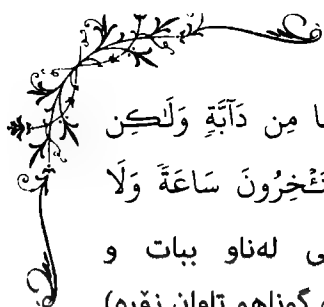 مِن دَآبَّةٖ وَلَٰكِن
سَاعَةٗ وَلَا
لەناو ببات و
گوناهو تاوان زۆرە)